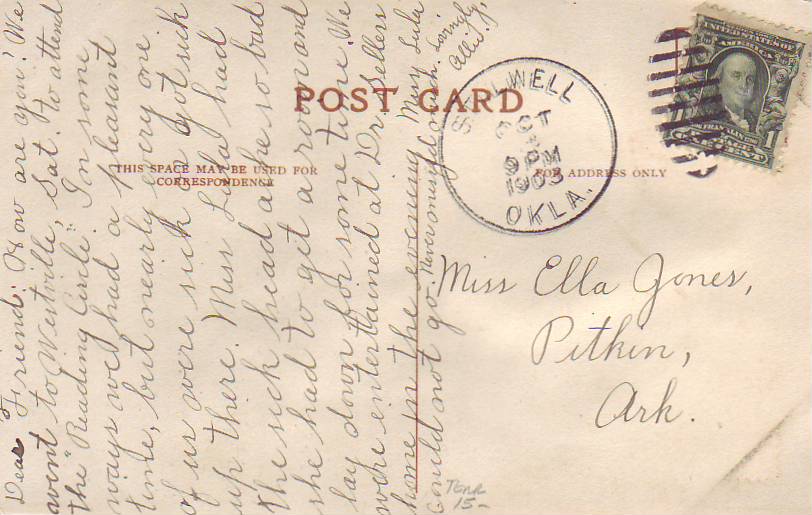 POST CARD
THIS SPACE MAY BE USED FOR
CORRESPONDENCE
FOR ADDRESS ONLY
STILWELL
OCT
6
9 PM
OKLA.
UNITED STATES OF
AMERICA
FRANKLIN
1
ONE CENT
Miss Ella Jones,
Pitkin,
Ark.
Dear Friend: How are you? We
went to Westville, Sat. to attend
the "Reading Circle". In some
ways we had a pleasant
time, but nearly every one
of us were sick or got sick
up there. Miss Lula had
the sick head ache so bad
she had to get a room and
lay down for some time. We
were entertained at Dr. Sellers
home in the evening. Mary Lula
could not go.
Lovingly
Allis J.
Terr
15-